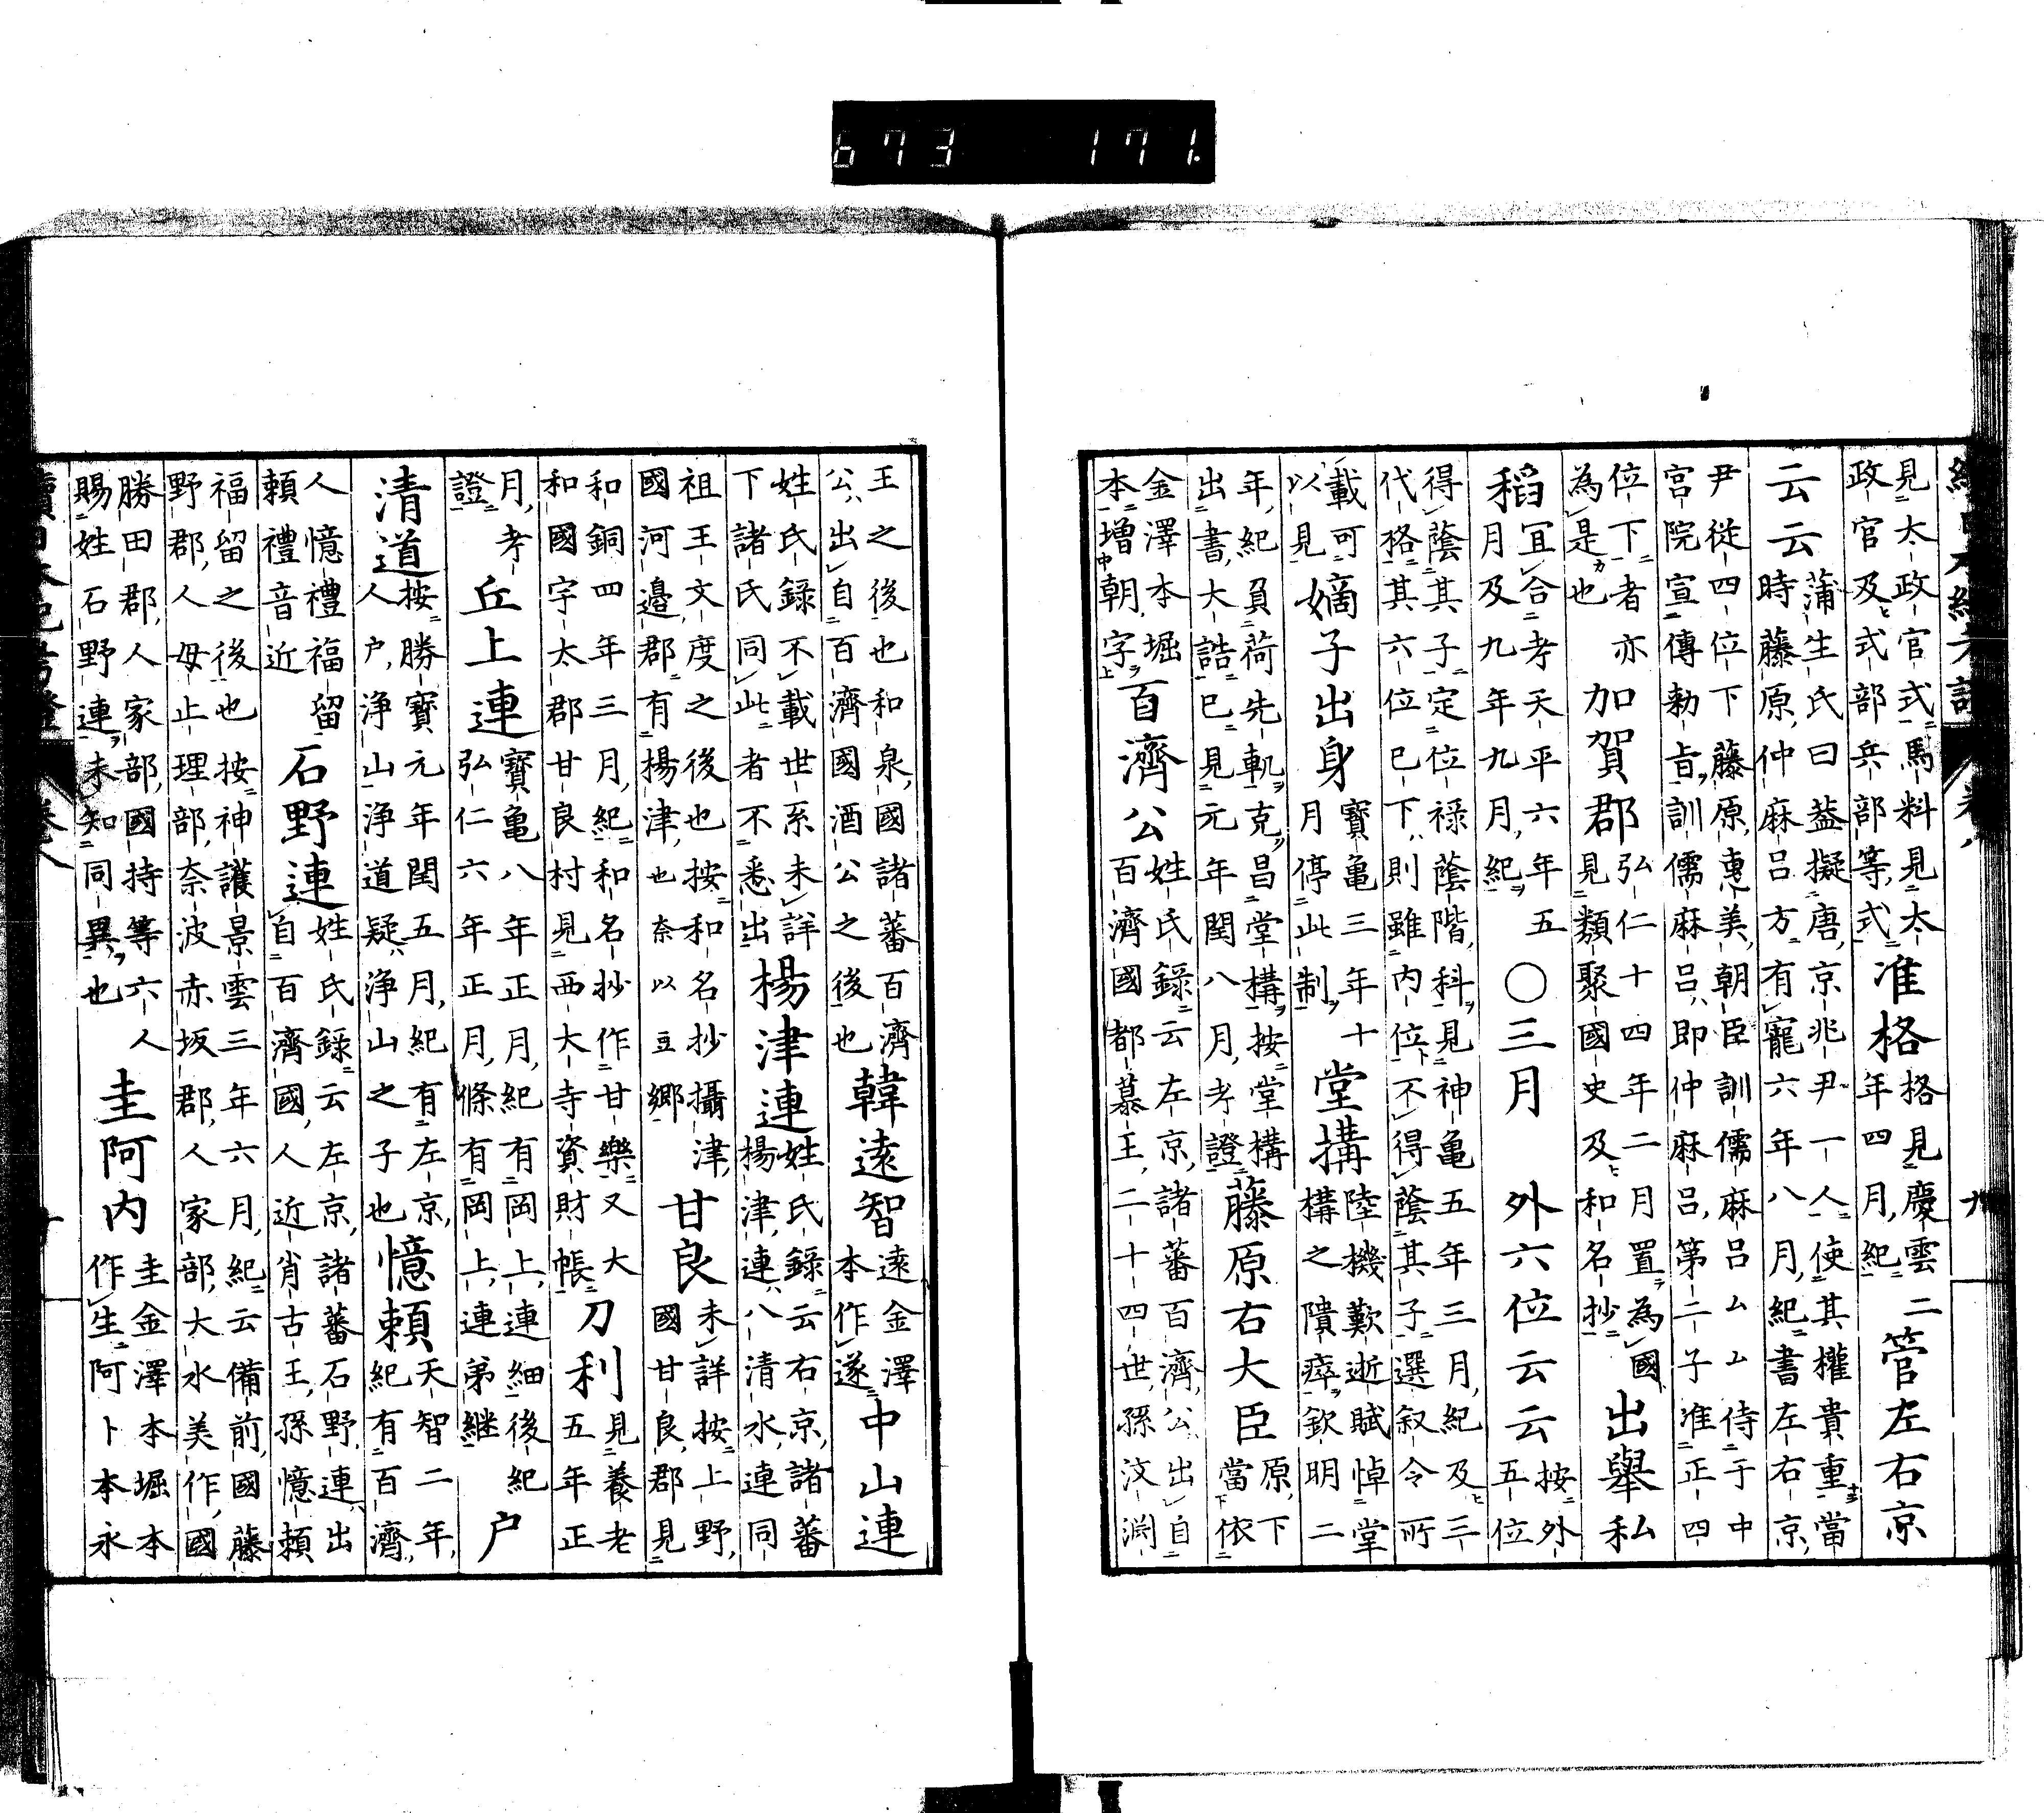 673 171.
見太政官式馬料見太
政官及式部兵部等式
准格
格見慶雲二
年四月紀
管左右京
云云
蒲生氏曰蓋擬唐京兆尹一人使其權貴重當
時藤原仲麻呂方有寵六年八月紀書左右京
尹從四位下藤原惠美朝臣訓儒麻呂ムム侍于中
宮院宣傳勅旨訓儒麻呂即仲麻呂第二子准正四
位下者亦
為是也
加賀郡
弘仁十四年二月置為國
見類聚國史及和名抄
出舉私
稻
宜合考天平六年五
月及九年九月紀
〇三月
外六位云云
按外
五位
得蔭其子定位祿蔭階科見神亀五年三月紀及三
代格其六位已下則雖内位不得蔭其子選叙令所
載可
以見
嫡子出身
寶亀三年十
月停此制
堂搆
陸機歎逝賦悼堂
構之隤瘁欽明二
年紀負荷先軌克昌堂構按堂構
出書大誥已見元年閏八月考證
藤原右大臣
原下
當依
金澤本堀
本増朝字
百濟公
姓氏録云左京諸蕃百濟公出自
百濟國都慕王二十四世孫汶淵
王之後也和泉國諸蕃百濟
公出自百濟國酒公之後也
韓遠智
遠金澤
本作遂
中山連
姓氏録不載世系未詳
下諸氏同此者不悉出
楊津連
姓氏録云右京諸蕃
楊津連八清水連同
祖王文度之後也按和名抄攝津
國河邉郡有楊津也奈以豆郷
甘良
未詳按上野
國甘良郡見
和銅四年三月紀和名抄作甘樂又大
和國宇太郡甘良村見西大寺資財帳
刀利
見養老
五年正
月考
證
丘上連
寶亀八年正月紀有岡上連細後紀
弘仁六年正月條有岡上連弟継
户
清道
按勝寶元年閏五月紀有左京
人户浄山浄道疑浄山之子也
憶頼
天智二年
紀有百濟
人憶禮福留
頼禮音近
石野連
姓氏録云左京諸蕃石野連出
自百濟國人近肖古王孫憶頼
福留之後也按神護景雲三年六月紀云備前國藤
野郡人母止理部奈波赤坂郡人家部大水美作國
勝田郡人家部國持等六人
賜姓石野連未知同異也
圭阿内
圭金澤本堀本
作生阿卜本永